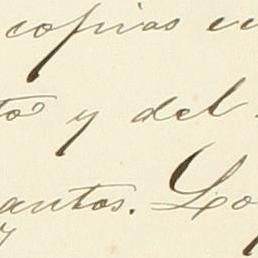 copias en
to y del
antos. Lo